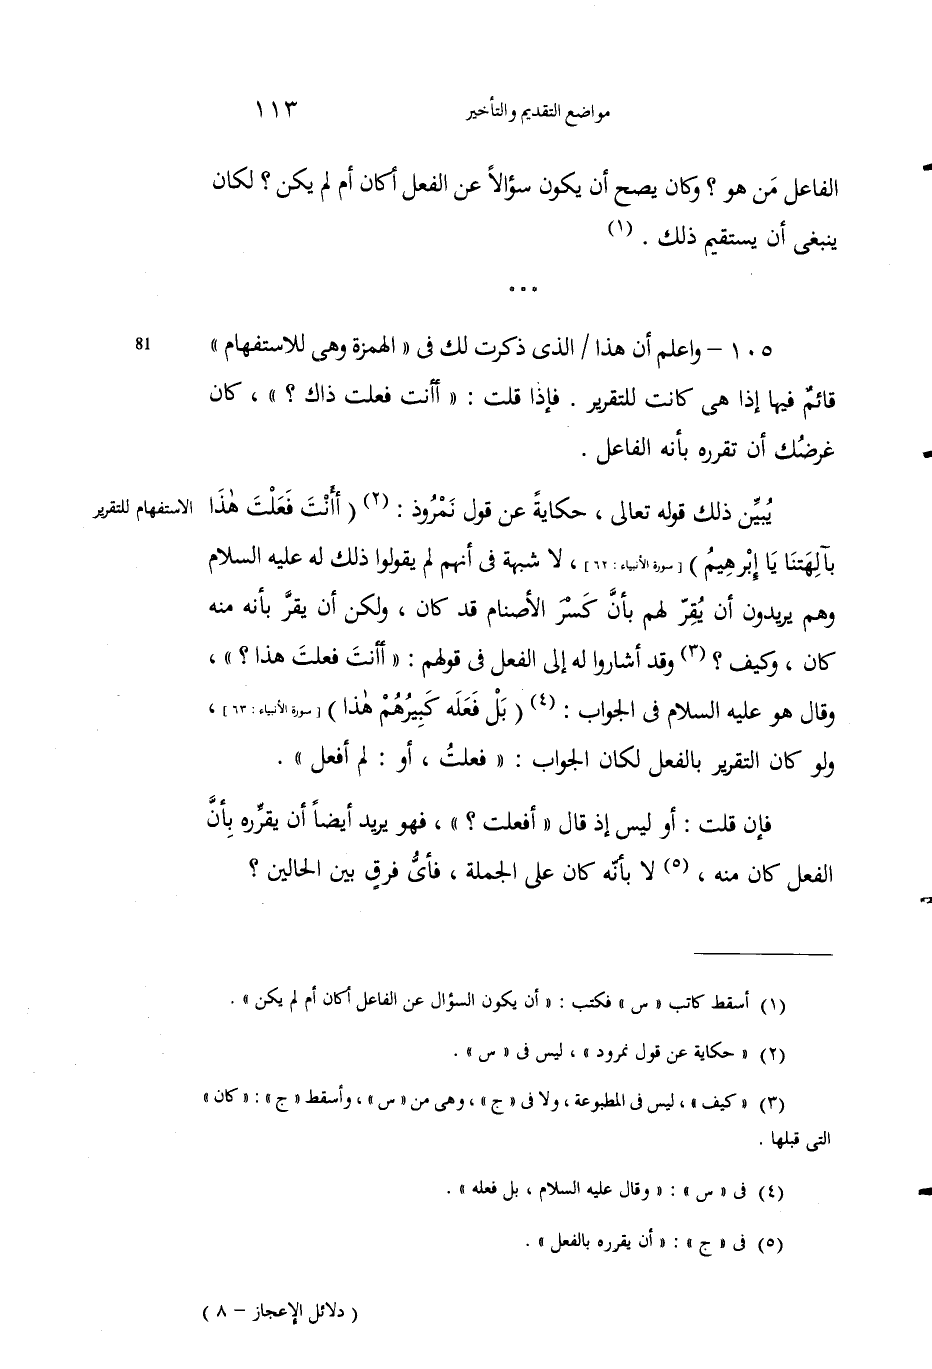 مواضع التقديم والتأخير ١١٣
الفاعل مَن هو ؟ وكان يصح أن يكون سؤالاً عن الفعل أكان أم لم يكن ؟ لكان
ينبغى أن يستقيم ذلك . (١)
* * *
١٠٥ – واعلم أن هذا / الذى ذكرت لك فى « الهمزة وهى للاستفهام » 81
قائمٌ فيها إذا هى كانت للتقرير . فإذا قلت : « أأنت فعلت ذاك ؟ » ، كان
غرضُك أن تقرره بأنه الفاعل .
يُبيِّن ذلك قوله تعالى ، حكايةً عن قول نَمْرُوذ : (٢) ( أَأَنْتَ فَعَلْتَ هٰذَا الاستفهام للتقرير
بآلِهَتنَا يَا إِبْرهِيمُ ) [ سورة الأنبياء : ٦٢ ] ، لا شبهة فى أنهم لم يقولوا ذلك له عليه السلام
وهم يريدون أن يُقِرّ لهم بأنَّ كَسْرَ الأصنام قد كان ، ولكن أن يقرَّ بأنه منه
كان ، وكيف ؟ (٣) وقد أشاروا له إلى الفعل فى قولهم : « أأنتَ فعلتَ هذا ؟ » ،
وقال هو عليه السلام فى الجواب : (٤) ( بَلْ فَعَلَه كَبِيرُهُمْ هٰذا ) [ سورة الأنبياء : ٦٣ ] ،
ولو كان التقرير بالفعل لكان الجواب : « فعلتُ ، أو : لم أفعل » .
فإن قلت : أو ليس إذ قال « أفعلت ؟ » ، فهو يريد أيضاً أن يقرِّره بِأنَّ
الفعل كان منه ، (٥) لا بأنّه كان على الجملة ، فأىُّ فرقٍ بين الحالين ؟
(١) أسقط كاتب « س » فكتب : « أن يكون السؤال عن الفاعل أكان أم لم يكن » .
(٢) « حكاية عن قول نمرود » ، ليس فى « س » .
(٣) « كيف » ، ليس فى المطبوعة ، ولا فى « ج » ، وهى من « س » ، وأسقط « ج » : « كان »
التى قبلها .
(٤) فى « س » : « وقال عليه السلام ، بل فعله » .
(٥) فى « ج » : « أن يقرره بالفعل » .
( دلائل الإعجاز – ٨ )